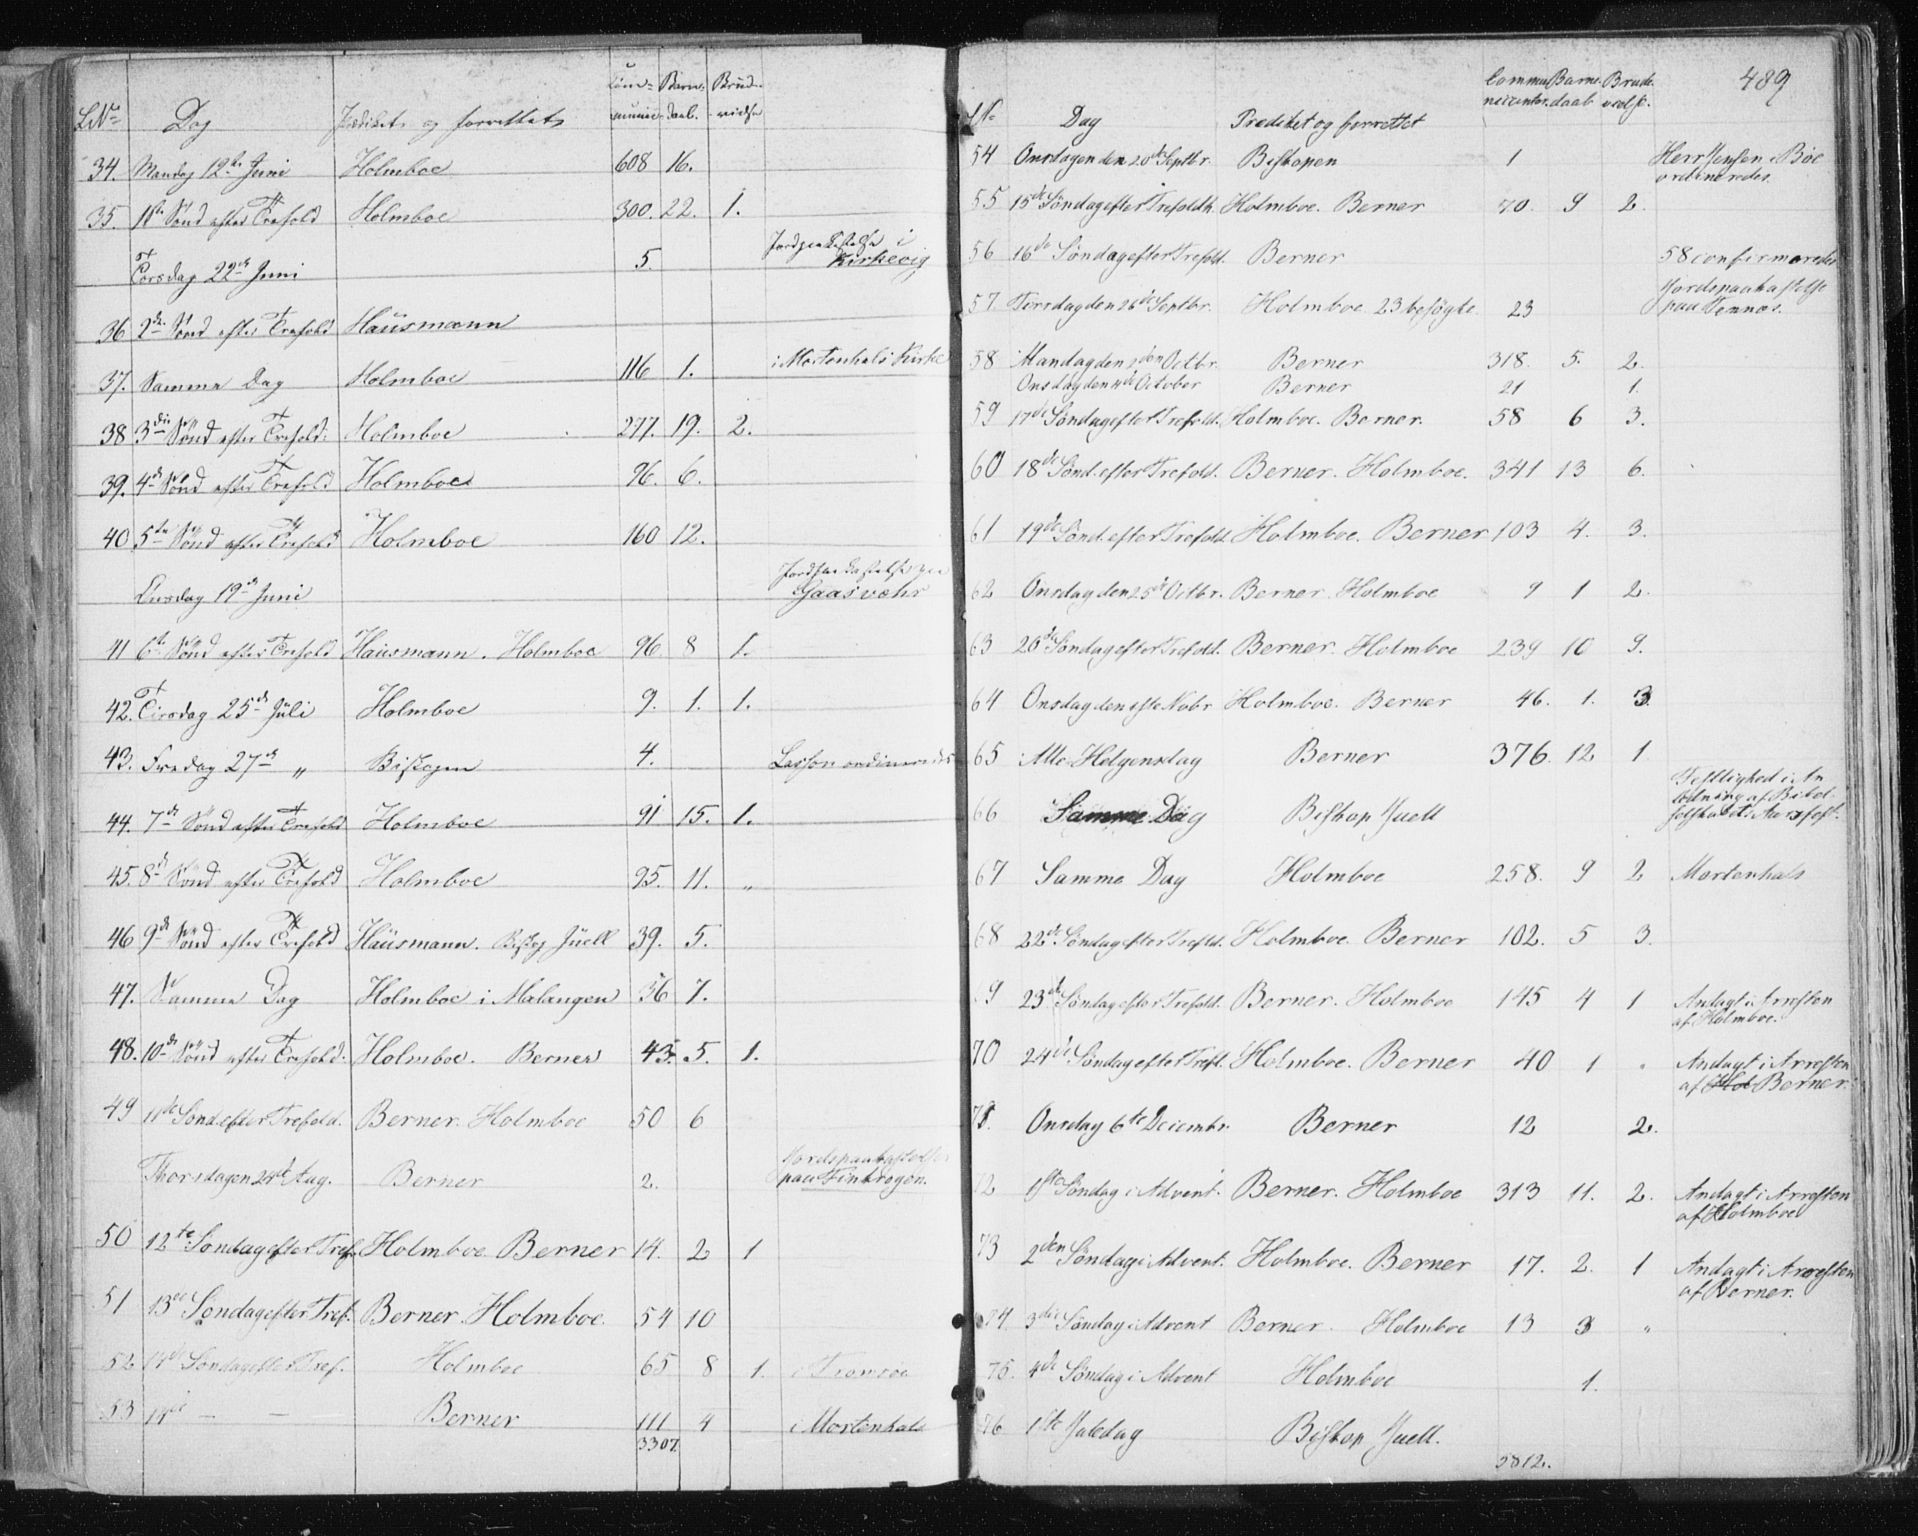 LNo Dag Prædiket og forrettet Communic. Barnedaab. Brudevielse
34. Mandag 12te Juni Holmboe 608 16.
35. 1ste Sønd efter Trefold Holmboe 300. 22. 1.
Torsdag 22de Juni 5. Jordpaakastelse i Kirkevig
36 2den Sønd efter Trefold Hausmann
37. Samme Dag Holmboe 116 1. i Mortenhals Kirke
38 3die Sønd efter Trefold: Holmboe 277. 19. 2.
39. 4de Sønd efter Trefold Holmboe 96. 6.
40 5te Sønd efter Trefold Holmboe 160 12.
Onsdag 19de Juni Jordpaakastelse paa Gaasvæhr
41 6te Sønd efter Trefold Hausmann. Holmboe 96 8 1.
42. Tirsdag 25de Juli Holmboe 9. 1. 1.
43. Fredag 27de " Biskopen 4. ordineredes
44. 7de Sønd efter Trefold Holmboe 91 15. 1.
45. 8de Sønd efter Trefold Holmboe 95. 11. "
46 9de Sønd efter Trefold Hausmann. Biskop Juell 39. 5.
47. Samme Dag Holmboe i Malangen 36 7.
48. 10de Sønd efter Trefold: Holmboe. Berner 43. 5. 1.
49 11de Sønd efter Trefold. Berner. Holmboe 50 6
Thorsdagen 24de Aug. Berner 2. Jordspaakastelse paa Finkrogen.
50 12te Søndag efter Tref. Holmboe Berner 14. 2 1
51 13de Søndag efter Tref. Berner. Holmboe. 54 10
52 14de Søndag efter Tref. Holmboe 65 8 1. i Tromsøe
53 14de — — Berner 111 4 i Mortenhals
3307.
489
LN Dag Prediket og forrettet Communicanter. Barnedaab Brudevielse.
54 Onsdagen den 20de Septbr. Biskopen 1 Herr Jensen i Bøe
ordineredes.
55 15de Søndag efter Trefoldh. Holmboe. Berner 70. 9 2.
56 16de Søndag efter Trefold. Berner 58 confirmeredes
57 Torsdag den 26de Septbr. Holmboe 23 besøgte. 23 Jordspaakastelse
paa Tennæs.
58 Mandag den 2den Octbr. Berner 318. 5. 2.
Onsdag den 4de October Berner 21 1.
59 17de Søndag efter Trefold. Holmboe. Berner. 58 6 3.
60 18de Sønd. efter Trefold. Berner. Holmboe. 341 13 6.
61 19de Sønd. efter Trefold. Holmboe. Berner 103 4. 3.
62 Onsdag den 25de Octbr. Berner. Holmboe 9 1 2.
63 20de Søndag efter Trefold. Berner. Holmboe 239 10 9.
64 Onsdag den 1ste Nobr Holmboe. Berner 46. 1. 3.
65 Alle-Helgensdag Berner 376. 12 1
66 Samme Dag Biskop Juell Festlighed i Anledning af Bibelselskabets Aarsfest.
67 Samme Dag Holmboe 258. 9 2 Mortenhals
68 22de Søndag efter Trefold. Holmboe. Berner 102. 5 3.
9 23de Søndag efter Trefold. Berner. Holmboe 145 4 1 Andagt i Arresten
af Holmboe.
70 24de Søndag efter Trefl. Holmboe. Berner 40 1 " Andagt i Arresten
af Hol Berner.
71. Onsdag 6te Decembr. Berner 12 2.
72 1ste Søndag i Advent. Berner. Holmboe 313 11. 2. Andagt i Arresten
af Holmboe
73 2den Søndag i Advent. Holmboe. Berner 17. 2. 1 Andagt i Arresten
af Berner.
74. 3die Søndag i Advent Berner. Holmboe 13 3 "
75. 4de Søndag i Advent Holmboe 1.
76 1ste Juledag Biskop Juell.
5812.